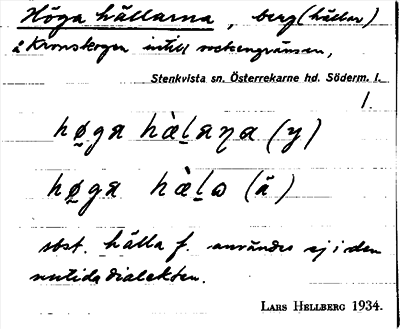 Höga hällarna, berg (hällar)
å Kronskogen intill sockengränsen,
Stenkvista sn. Österrekarne hd. Söderm. l.
1.
hø̱ga hæ̀ḻaꞃa (y)
hø̱ga hæ̀ḻɷ (ä)
sbst. hälla f. användes ej i den
nutida dialekten.
LARS HELLBERG 1934.